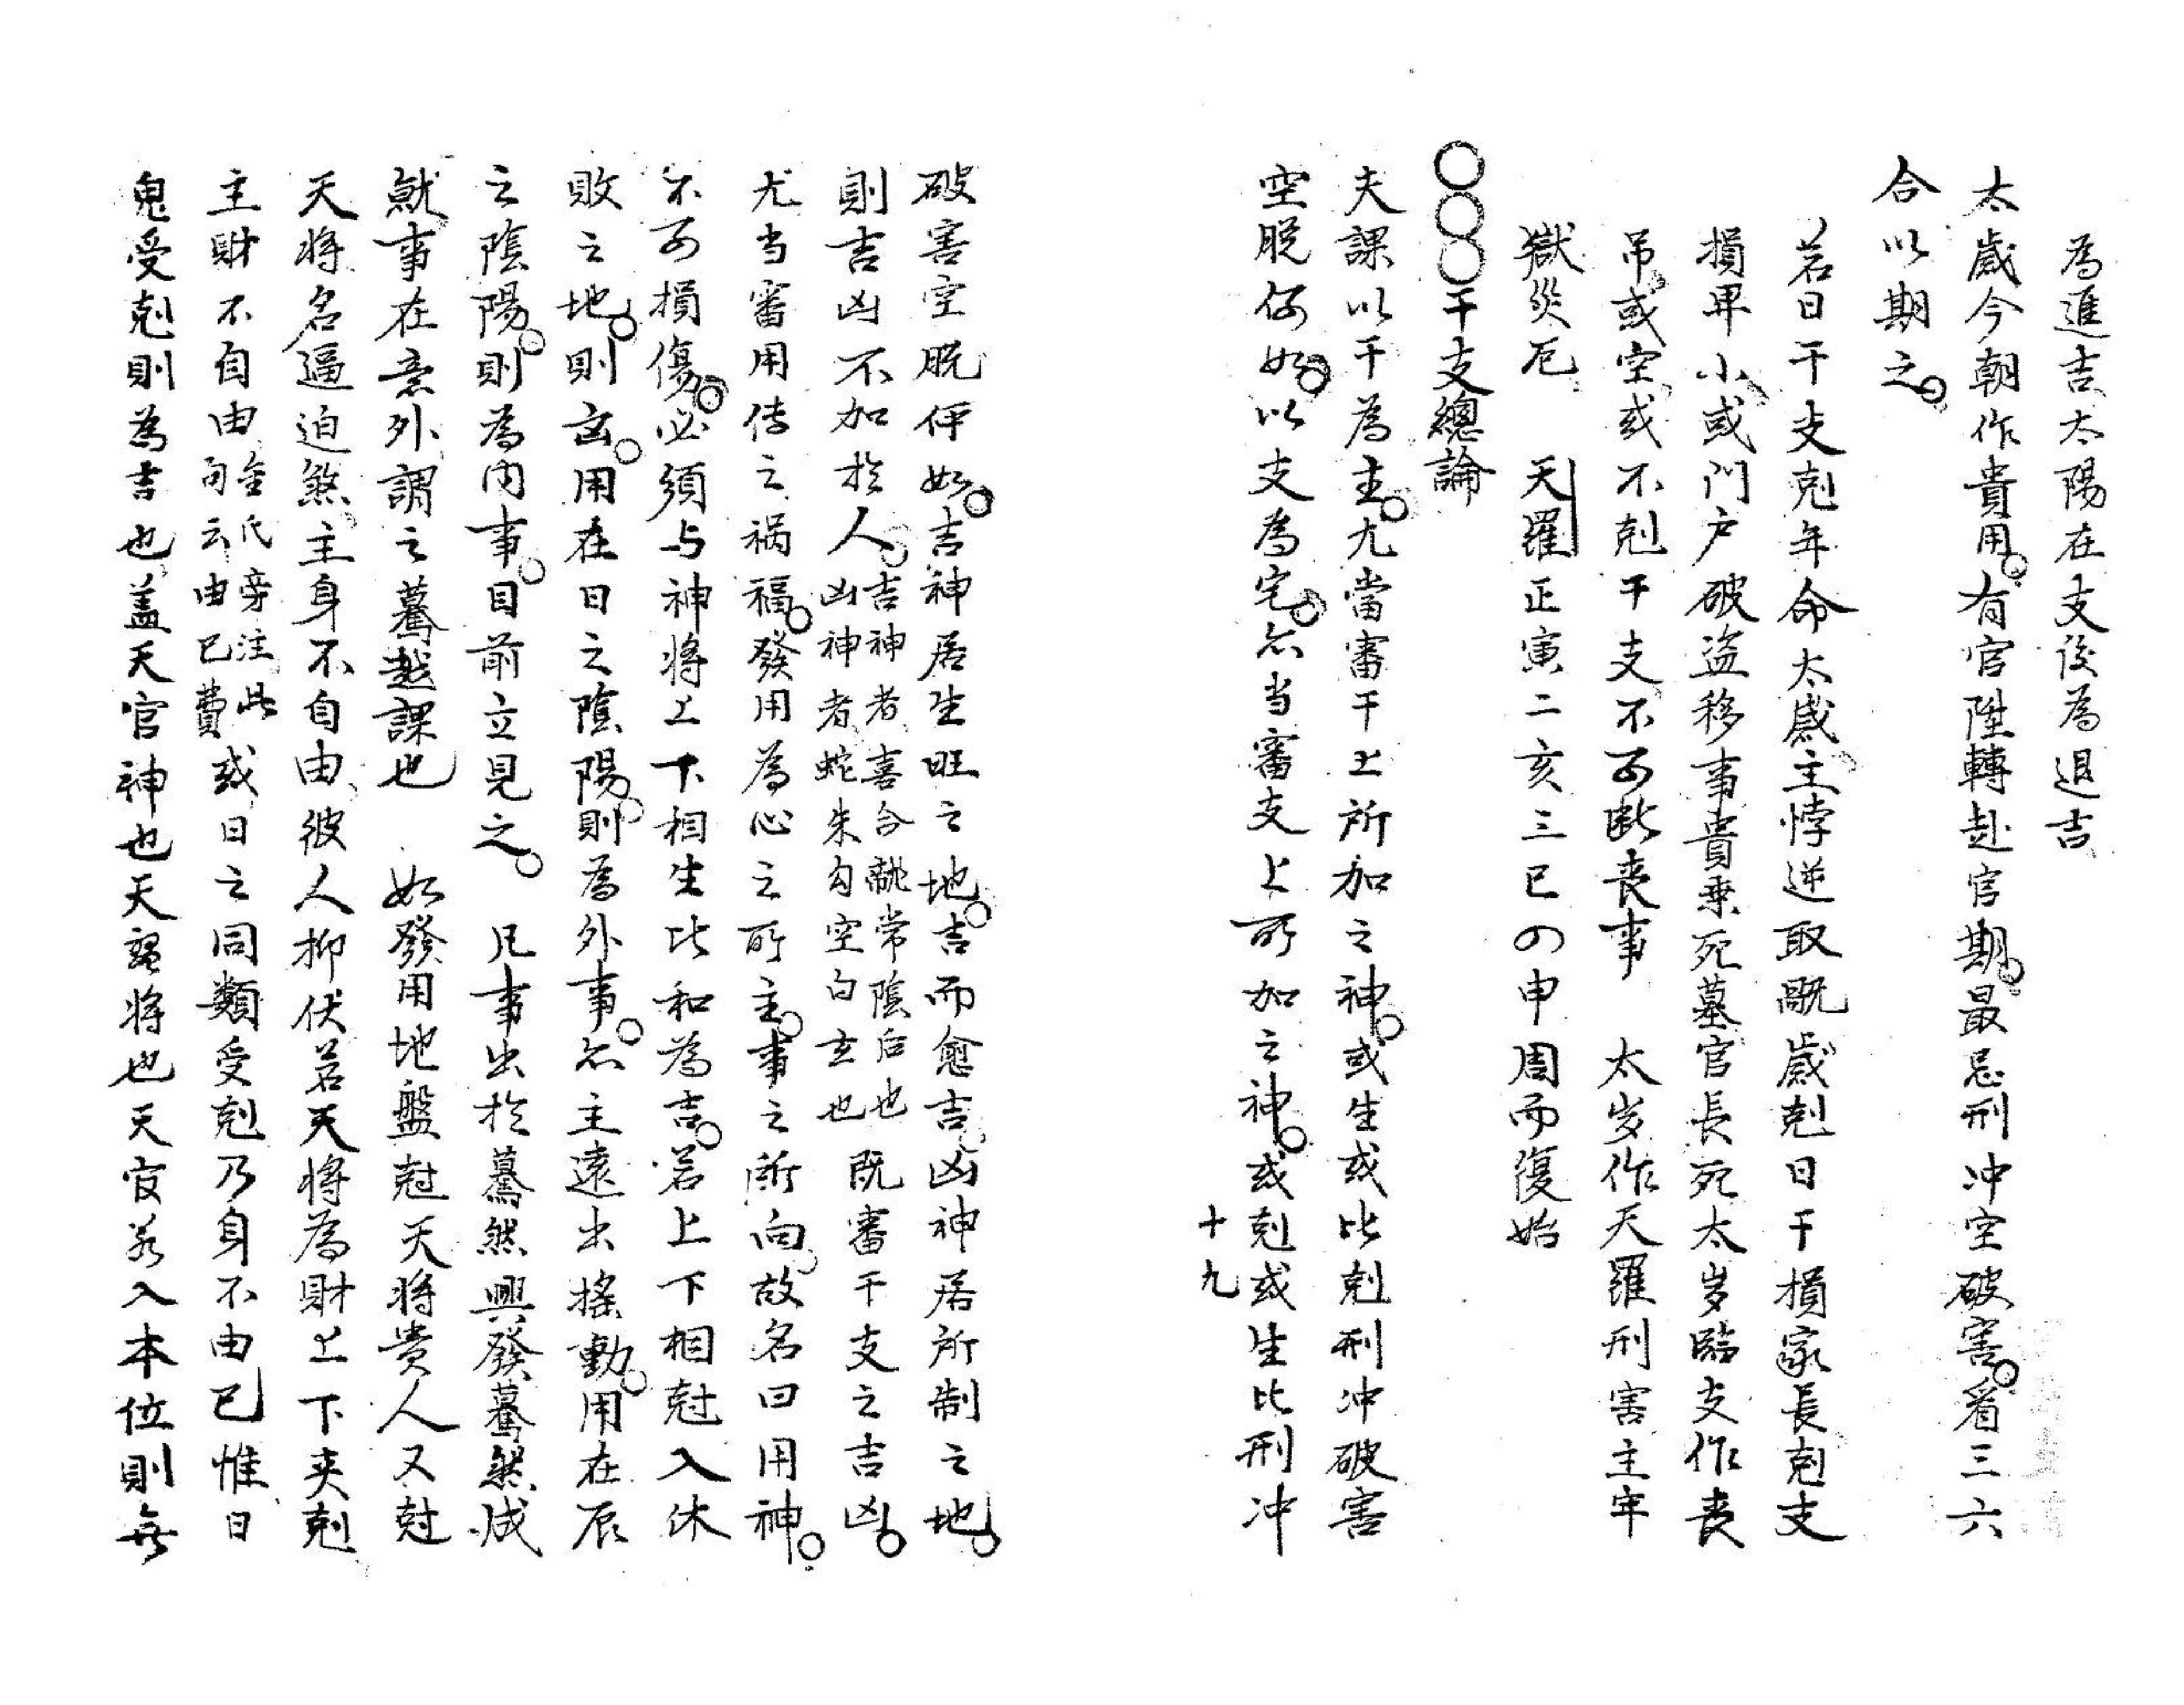 為進吉太陽在支後為退吉
太歲今朝作貴用。有官陞轉赴官期。最忌刑冲空破害。看三六
合以期之。
若日干支剋年命太歲主悖逆取戩歲剋日干損家長剋支
損畢小或門户破盜移事貴乗死墓官長死太岁臨支作喪
吊或空或不剋干支不可斷喪事 太岁作天羅刑害主牢
獄災厄 天羅正寅二亥三巳の申周而復始
○○○干支總論
夫課以干為主。尤當審干上所加之神。或生或比剋刑冲破害
空脱何如。以支為宅。亦当審支上所加之神。或剋或生比刑冲
十九
破害空脱何如。吉神居生旺之地。吉而愈吉凶神居所制之地。
則吉凶不加於人。吉神者喜合龍常陰后也凶神者蛇朱勾空白玄也既審干支之吉凶。
尤当審用传之祸福。發用為心之所主。事之所向故名曰用神。
不可損傷。必須与神将上下相生比和為吉。若上下相尅入休
敗之地。則凶。用在日之陰陽。則為外事。亦主遠出搖動。用在辰
之陰陽。則為内事。目前立見之。 凡事出於驀然興發驀然成
就事在意外謂之驀越課也 如發用地盤尅天将貴人又尅
天将名逼迫煞主身不自由彼人抑伏若天将為財上下夹剋
主財不自由金氏旁注此句云由已費或日之同類受剋乃身不由已惟日
鬼受剋則為吉也盖天官神也天盤将也天官若入本位則無